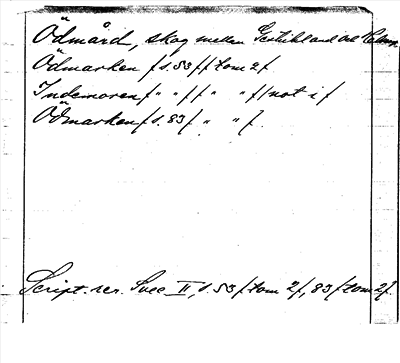 Ödmård, skog mellan Gestrikland och Helsing.
Ödmarken /s. 53// tom 2/
Indemoren/ " // " "//not i/
Ödmarken/s. 83/ " " /.
Script. rer. Svec II, s. 53/tom 2/, 83/tom 2/.